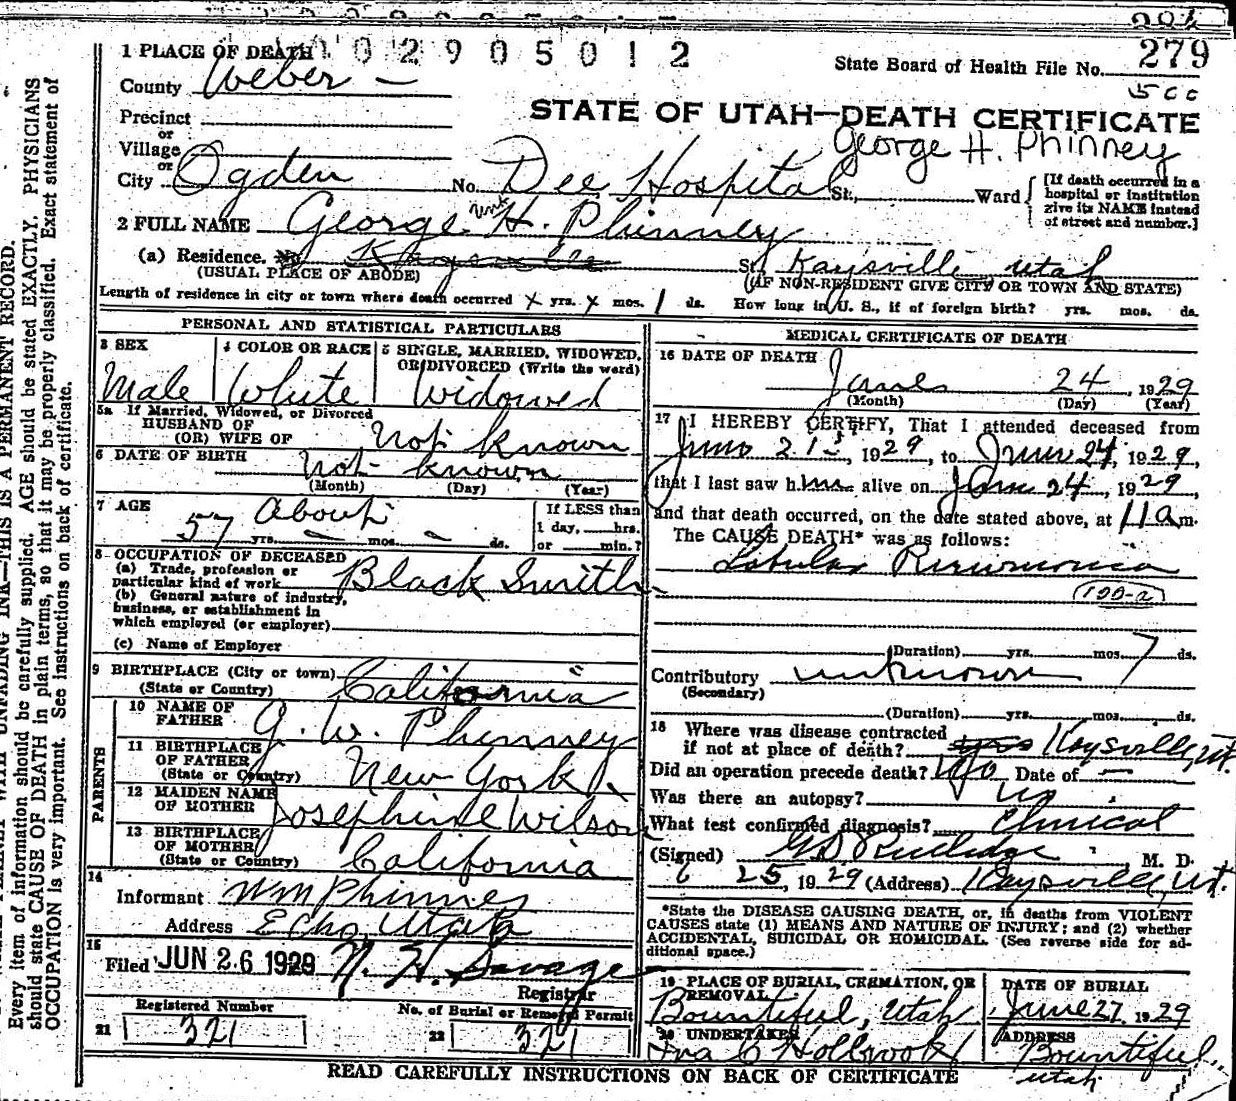 1 PLACE OF DEATH
0 2 9 0 5 0 1 2
State Board of Health File No. 279
County Weber
500
STATE OF UTAH—DEATH CERTIFICATE
Precinct
or
Village
George H. Phinney
or
City Ogden No. Dee Hospital St., Ward
[If death occurred in a hospital or institution give its NAME instead of street and number.]
2 FULL NAME George H. Phinney
(a) Residence. No. Kaysville St. Kaysville, Utah
(USUAL PLACE OF ABODE) (IF NON-RESIDENT GIVE CITY OR TOWN AND STATE)
Length of residence in city or town where death occurred x yrs. x mos. 1 ds. How long in U. S., if of foreign birth? yrs. mos. ds.
PERSONAL AND STATISTICAL PARTICULARS
3 SEX
Male
4 COLOR OR RACE
White
5 SINGLE, MARRIED, WIDOWED, OR DIVORCED (Write the word)
Widowed
5a If Married, Widowed, or Divorced
HUSBAND OF
(OR) WIFE OF Not known
6 DATE OF BIRTH Not known
(Month) (Day) (Year)
7 AGE About
57 yrs. — mos. — ds.
If LESS than
1 day, hrs.
or min.?
8 OCCUPATION OF DECEASED
(a) Trade, profession or
particular kind of work Black Smith
(b) General nature of industry,
business, or establishment in
which employed (or employer)
(c) Name of Employer
9 BIRTHPLACE (City or town)
(State or Country) California
PARENTS
10 NAME OF
FATHER G. W. Phinney
11 BIRTHPLACE
OF FATHER
(State or Country) New York
12 MAIDEN NAME
OF MOTHER Josephine Wilson
13 BIRTHPLACE
OF MOTHER
(State or Country) California
14
Informant Wm Phinney
Address Echo, Utah
15
Filed JUN 26 1929 N. H. Savage
Registrar
Registered Number
21 321
No. of Burial or Removal Permit
22 321
MEDICAL CERTIFICATE OF DEATH
16 DATE OF DEATH
June 24, 1929
(Month) (Day) (Year)
17 I HEREBY CERTIFY, That I attended deceased from
June 21st, 1929, to June 24, 1929,
that I last saw him alive on June 24, 1929,
and that death occurred, on the date stated above, at 11 am.
The CAUSE DEATH* was as follows:
Lobular Pneumonia
100-a
(Duration) yrs. mos. 7 ds.
Contributory unknown
(Secondary)
(Duration) yrs. mos. ds.
18 Where was disease contracted
if not at place of death? yes Kaysville, Ut.
Did an operation precede death? No Date of —
Was there an autopsy? No
What test confirmed diagnosis? Clinical
(Signed) G D Rutledge, M. D.
6 25, 1929 (Address) Kaysville, Ut.
*State the DISEASE CAUSING DEATH, or, in deaths from VIOLENT
CAUSES state (1) MEANS AND NATURE OF INJURY; and (2) whether
ACCIDENTAL, SUICIDAL OR HOMICIDAL. (See reverse side for ad-
ditional space.)
19 PLACE OF BURIAL, CREMATION, OR
REMOVAL
Bountiful, Utah
DATE OF BURIAL
June 27, 1929
20 UNDERTAKER
Ira C Holbrook
ADDRESS
Bountiful,
Utah
READ CAREFULLY INSTRUCTIONS ON BACK OF CERTIFICATE
WITH UNFADING INK—THIS IS A PERMANENT RECORD.
Every item of information should be carefully supplied. AGE should be stated EXACTLY. PHYSICIANS
should state CAUSE OF DEATH in plain terms, so that it may be properly classified. Exact statement of
OCCUPATION is very important. See instructions on back of certificate.